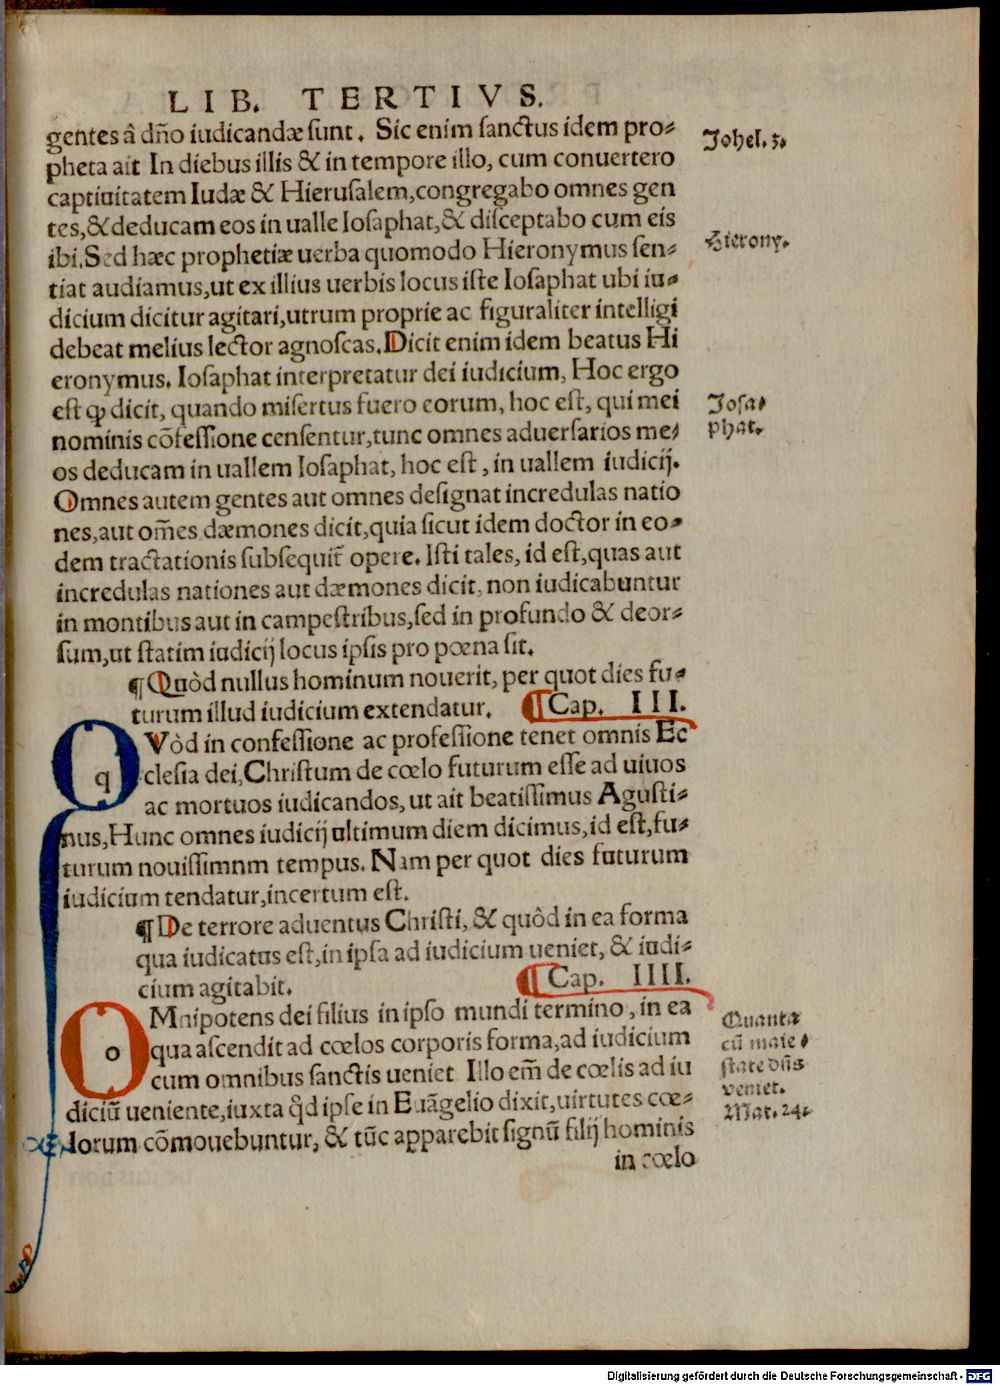 LIB. TERTIVS.
gentes â dn̄o iudicandæ sunt. Sic enim sanctus idem pro⸗
pheta ait In diebus illis & in tempore illo, cum conuertero
captiuitatem Iudæ & Hierusalem,congregabo omnes gen
tes,& deducam eos in ualle Iosaphat,& disceptabo cum eis
ibi.Sed hæc prophetiæ uerba quomodo Hieronymus sen⸗
tiat audiamus,ut ex illius uerbis locus iste Iosaphat ubi iu⸗
dicium dicitur agitari,utrum proprie ac figuraliter intelligi
debeat melius lector agnoscas.Dicit enim idem beatus Hi
eronymus. Iosaphat interpretatur dei iudicium, Hoc ergo
est ꝙ dicit, quando misertus fuero eorum, hoc est, qui mei
nominis cōfessione censentur,tunc omnes aduersarios me⸗
os deducam in uallem Iosaphat, hoc est, in uallem iudicij.
Omnes autem gentes aut omnes designat incredulas natio
nes,aut om̄es dæmones dicit,quia sicut idem doctor in eo⸗
dem tractationis subsequit̄ opere. Isti tales, id est,quas aut
incredulas nationes aut dæmones dicit, non iudicabuntur
in montibus aut in campestribus,sed in profundo & deor⸗
sum,ut statim iudicij locus ipsis pro pœna sit.
¶ Quòd nullus hominum nouerit, per quot dies fu⸗
turum illud iudicium extendatur. ¶ Cap. III.
QVòd in confessione ac professione tenet omnis Ec
clesia dei,Christum de cœlo futurum esse ad uiuos
ac mortuos iudicandos, ut ait beatissimus Agusti⸗
nus,Hunc omnes iudicij ultimum diem dicimus,id est,fu⸗
turum nouissimnm tempus. Nam per quot dies futurum
iudicium tendatur,incertum est.
¶ De terrore aduentus Christi, & quôd in ea forma
qua iudicatus est,in ipsa ad iudicium ueniet, & iudi⸗
cium agitabit. ¶ Cap. IIII.
OMnipotens dei filius in ipso mundi termino, in ea
qua ascendit ad cœlos corporis forma,ad iudicium
cum omnibus sanctis ueniet Illo em̄ de cœlis ad iu
diciū ueniente,iuxta qd̄ ipse in Euāgelio dixit,uirtutes cœ⸗
lorum cōmouebuntur, & tūc apparebit signū filij hominis
in cœlo
Johel. 3.
Hierony.
Josa⸗
phat.
Quanta
cū maie⸗
state dn̄s
veniet.
Mat. 24.
Digitalisierung gefördert durch die Deutsche Forschungsgemeinschaft - DFG